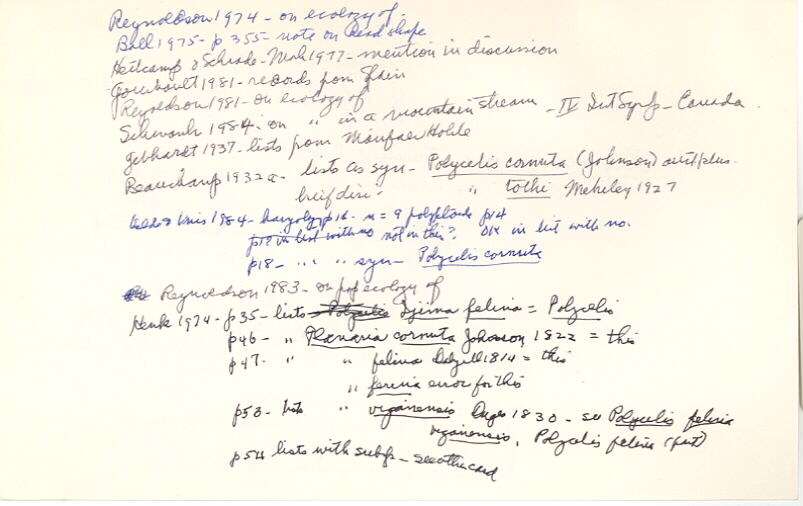 Reynoldson 1974 - on ecology of.
Ball 1975 - p 355 - note on head shape
Heitkamp & Schrade-Mohl 1977 - mention in discussion
Gourbault 1981 - records from Spain
Reynoldson 1981 - on ecology of
Schwank 1984 - on " in a mountain stream - IV Int Symp - Canada.
Gebhardt 1937 - lists from
Beauchamp 1932a - lists as syn - Polycelis cornuta (Johnson)
brief disc - " tothi Meheley 1927
1984 - karyology p16 - n = 9 polyploids p14
p12 in list with no not in this? p14 in list with no.
p18 - " " syn - Polycelis cornuta
Reynoldson 1983 - on pop ecology of
Henk 1974 - p35 - lists Polycelis Djeima felina = Polycelis
p46 - " Planaria cornuta Johnson 1822 = this
p47 - " " felina Dalyell 1814 = this
" ferina error for this
p53 - lists " viganensis Duges 1830 - see Polycelis felina
viganensis, Polycelis felina (part)
p54 lists with subsp - see other card